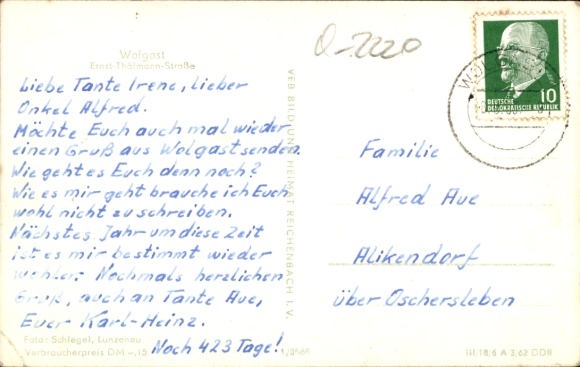 Wolgast
Ernst-Thälmann-Straße
Liebe Tante Irene, lieber
Onkel Alfred.
Möchte Euch auch mal wieder
einen Gruß aus Wolgast senden.
Wie geht es Euch denn noch?
Wie es mir geht brauche ich Euch
wohl nicht zu schreiben.
Nächstes Jahr um diese Zeit
ist es mir bestimmt wieder
wohler. Nochmals herzlichen
Gruß, auch an Tante Aue,
Euer Karl-Heinz.
Noch 423 Tage!
Foto: Schlegel, Lunzenau
Verbraucherpreis DM -,15
VEB BILD UND HEIMAT REICHENBACH I. V.
Q-2220
DEUTSCHE
DEMOKRATISCHE REPUBLIK
10
Familie
Alfred Aue
Alikendorf
über Oschersleben
III/18/6 A 3,62 DDR